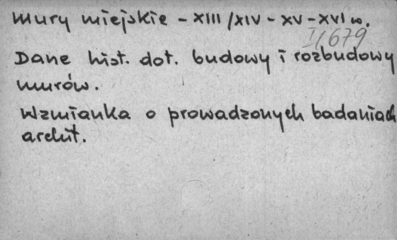 Mury miejskie - XIII/XIV - XV - XVI w.
I/679
Dane hist. dot. budowy i rozbudowy
murów.
Wzmianka o prowadzonych badaniach
archit.